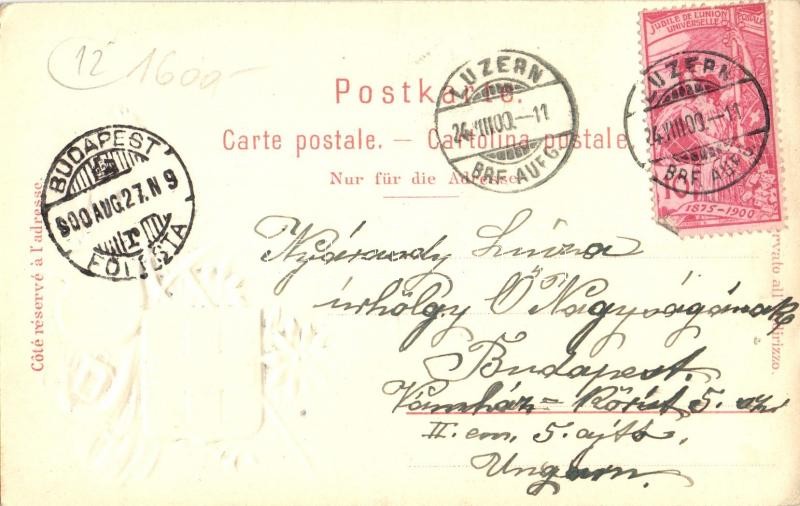 12 1600-
JUBILÉ DE L'UNION
POSTALE
UNIVERSELLE
1875-1900
Postkarte.
Carte postale. — Cartolina postale
Nur für die Adresse.
LUZERN
24.VIII.00.—11
BRF. AUFG.
LUZERN
24.VIII.00.—11
BRF. AUFG.
BUDAPEST
900 AUG. 27. N 9
FŐPOSTA
Côté réservé à l'adresse.
Nyáraody Luiza
úrhölgy Ő Nagyságának
Budapest.
Vámház-Körút 5. sz.
II. em. 5. ajtó.
Ungarn.